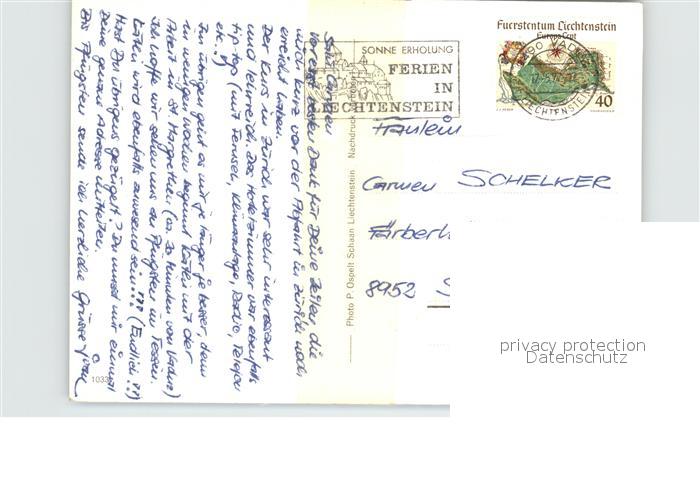 Fuerstentum Liechtenstein
Europa Cept
40
LIECHTENSTEIN
SONNE ERHOLUNG
FERIEN
IN
LIECHTENSTEIN
Fräulein
Carmen SCHELKER
Färberh
8952 S
privacy protection
Datenschutz
Photo P. Ospelt Schaan Liechtenstein Nachdruck
1033
Carmen
Vorerst besten Dank für Deine Zeilen, die
mich kurz vor der Abfahrt in Zürich noch
erreicht haben.
Der Kurs in Zürich war sehr interessant
und lehrreich. Das Hotelzimmer war ebenfalls
tip top (mit Fernseh, Klimaanlage, Radio, Telefon
etc.)
Im übrigen geht es mir je länger je besser, denn
in wenigen Wochen beginnt mit der
Arbeit in St. Margrethen (ca. 30 Minuten von Vaduz)
Ich hoffe wir sehen uns an Pfingsten im Tessin.
wird ebenfalls anwesend sein!!! (Endlich!!)
Hast Du übrigens gezügelt? Du musst mir einmal
Deine genaue Adresse mitteilen.
Bis Pfingsten sende ich herzliche Grüsse